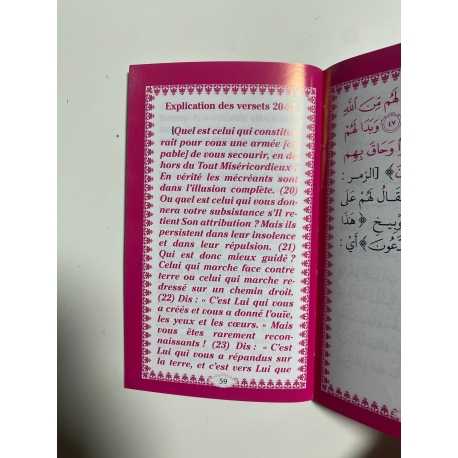 Explication des versets 20
[Quel est celui qui constitue-
rait pour vous une armée [ca-
pable] de vous secourir, en de-
hors du Tout Miséricordieux ?
En vérité les mécréants sont
dans l'illusion complète. (20)
Ou quel est celui qui vous don-
nera votre subsistance s'Il re-
tient Son attribution ? Mais ils
persistent dans leur insolence
et dans leur répulsion. (21)
Qui est donc mieux guidé ?
Celui qui marche face contre
terre ou celui qui marche re-
dressé sur un chemin droit.
(22) Dis : « C'est Lui qui vous
a créés et vous a donné l'ouïe,
les yeux et les cœurs. » Mais
vous êtes rarement recon-
naissants ! (23) Dis : « C'est
Lui qui vous a répandus sur
la terre, et c'est vers Lui que
59
لَهُم مِّنَ ٱللَّهِ
﴿٤٧﴾ وَبَدَا لَهُمْ
وَحَاقَ بِهِم
[الزمر:
يُقَالُ لَهُمْ عَلَى
هَٰذَا
أي: